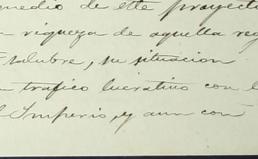 medio de este proyecto
riqueza de aquella reg
salubre, su situacion
trafico lucrativo con l
l Imperio, y aun con